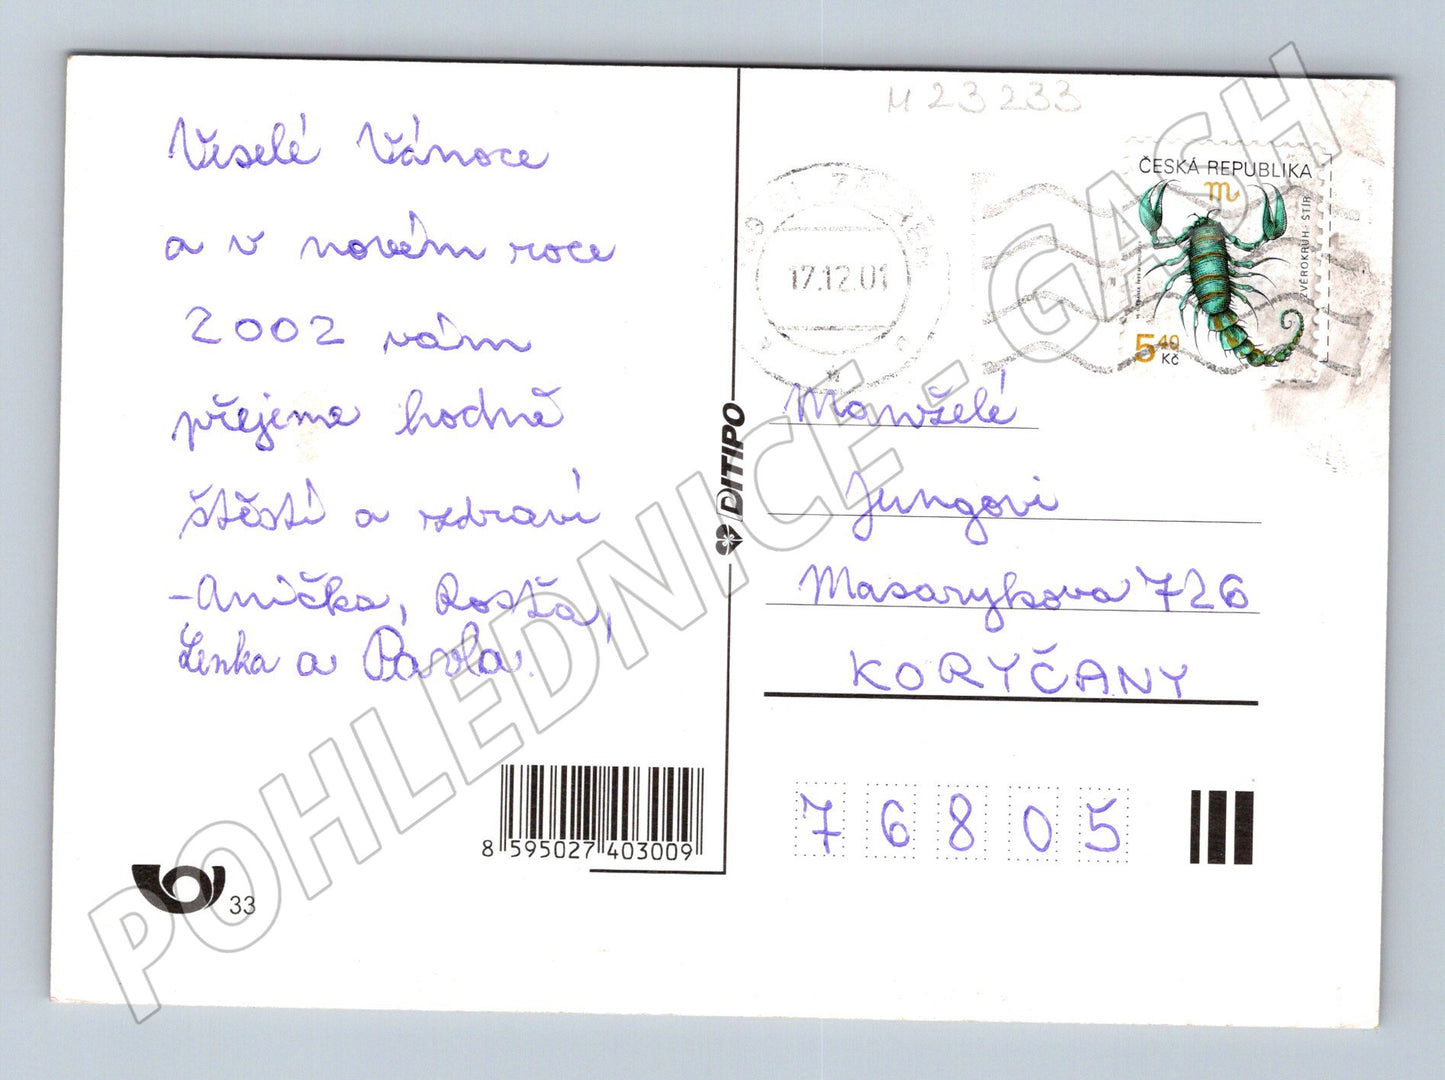 Veselé Vánoce
a v novém roce
2002 vám
přejeme hodně
štěstí a zdraví
-Anička, Rosťa,
Lenka a Pavla.
8 595027 403009
33
DITIPO
M 23 233
17.12.01
ČESKÁ REPUBLIKA
ZVĚROKRUH - ŠTÍR
5 40
Kč
Manželé
Jungovi
Masarykova 726
KORYČANY
76805
POHLEDNICE - GASH